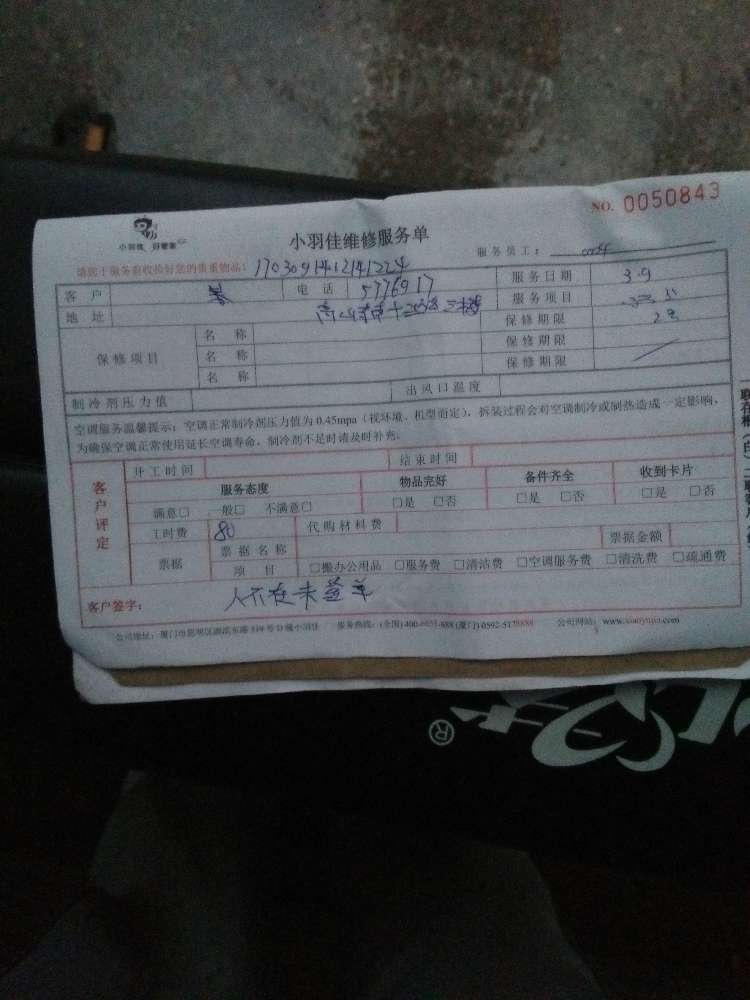 NO. 0050843
小羽佳 好管家
小羽佳维修服务单
服务员工：
请您于服务前收捡好您的贵重物品！ 1703091412141224
客户 电话 5776917 服务日期 3.9
地址 服务项目
保修项目 名称 保修期限
名称 保修期限
名称 保修期限
制冷剂压力值 出风口温度
空调服务温馨提示：空调正常制冷剂压力值为0.45mpa（视环境、机型而定），拆装过程会对空调制冷或制热造成一定影响，
为确保空调正常使用延长空调寿命，制冷剂不足时请及时补充。
客户评定 开工时间 结束时间
服务态度 物品完好 备件齐全 收到卡片
满意□ 一般□ 不满意□ □是 □否 □是 □否 □是 □否
工时费 80 代购材料费
票据 票据名称 票据金额
项目 □搬办公用品 □服务费 □清洁费 □空调服务费 □清洗费 □疏通费
客户签字： 人不在未签单
公司地址：厦门市思明区 服务热线：(全国)400- -888 (厦门)0592-5178888 公司网站：www.xiaoyujia.com
®